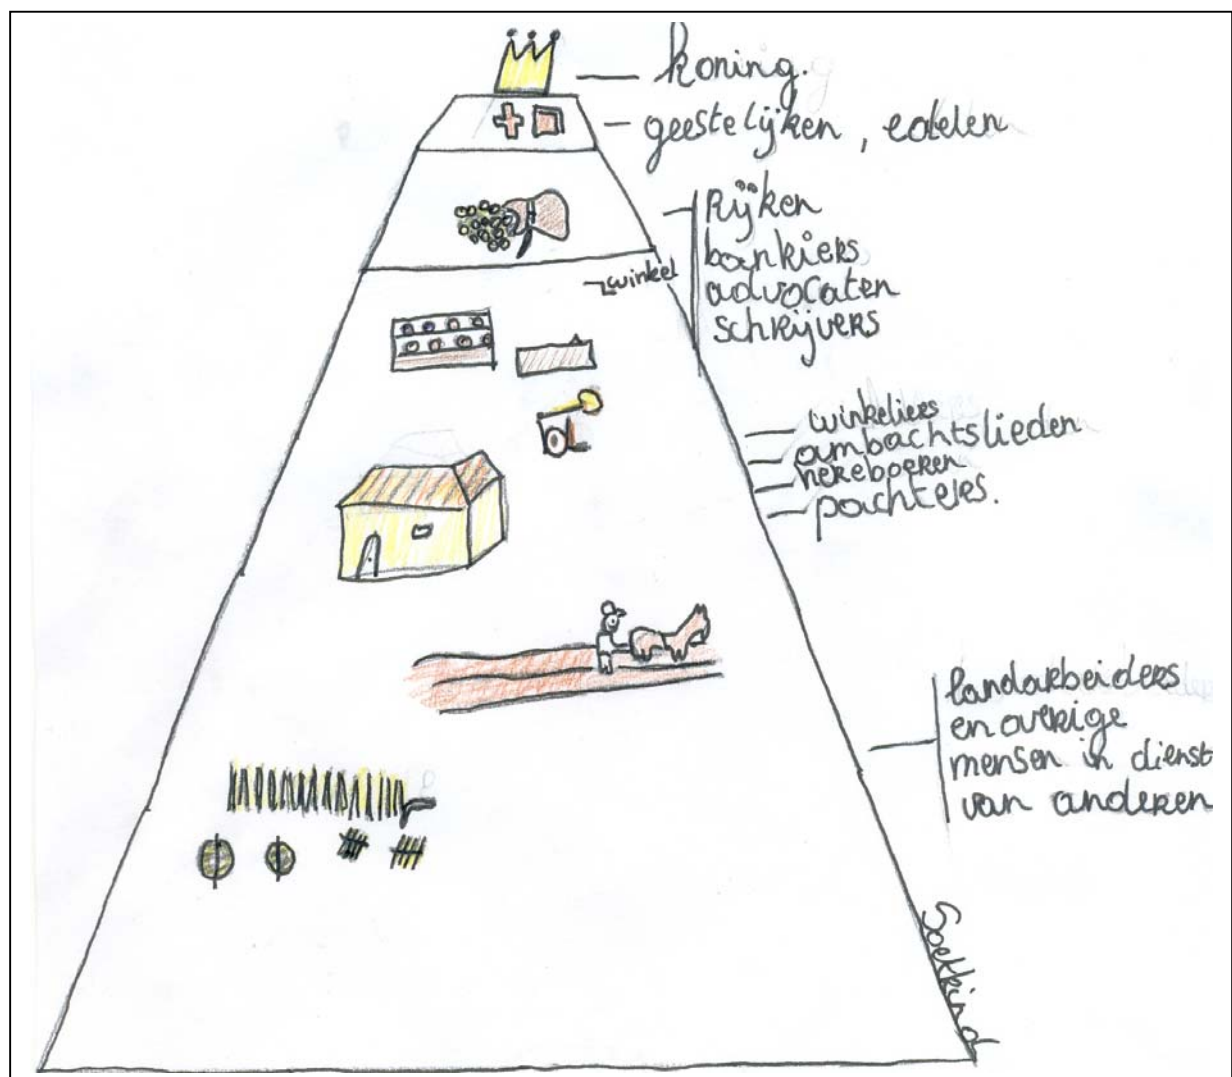 koning.
geestelijken, edelen
Rijken
bankiers
advocaten
schrijvers
winkel
winkeliers
ambachtslieden
hereboeren
pachters.
landarbeiders
en overige
mensen in dienst
van anderen
Soekkind